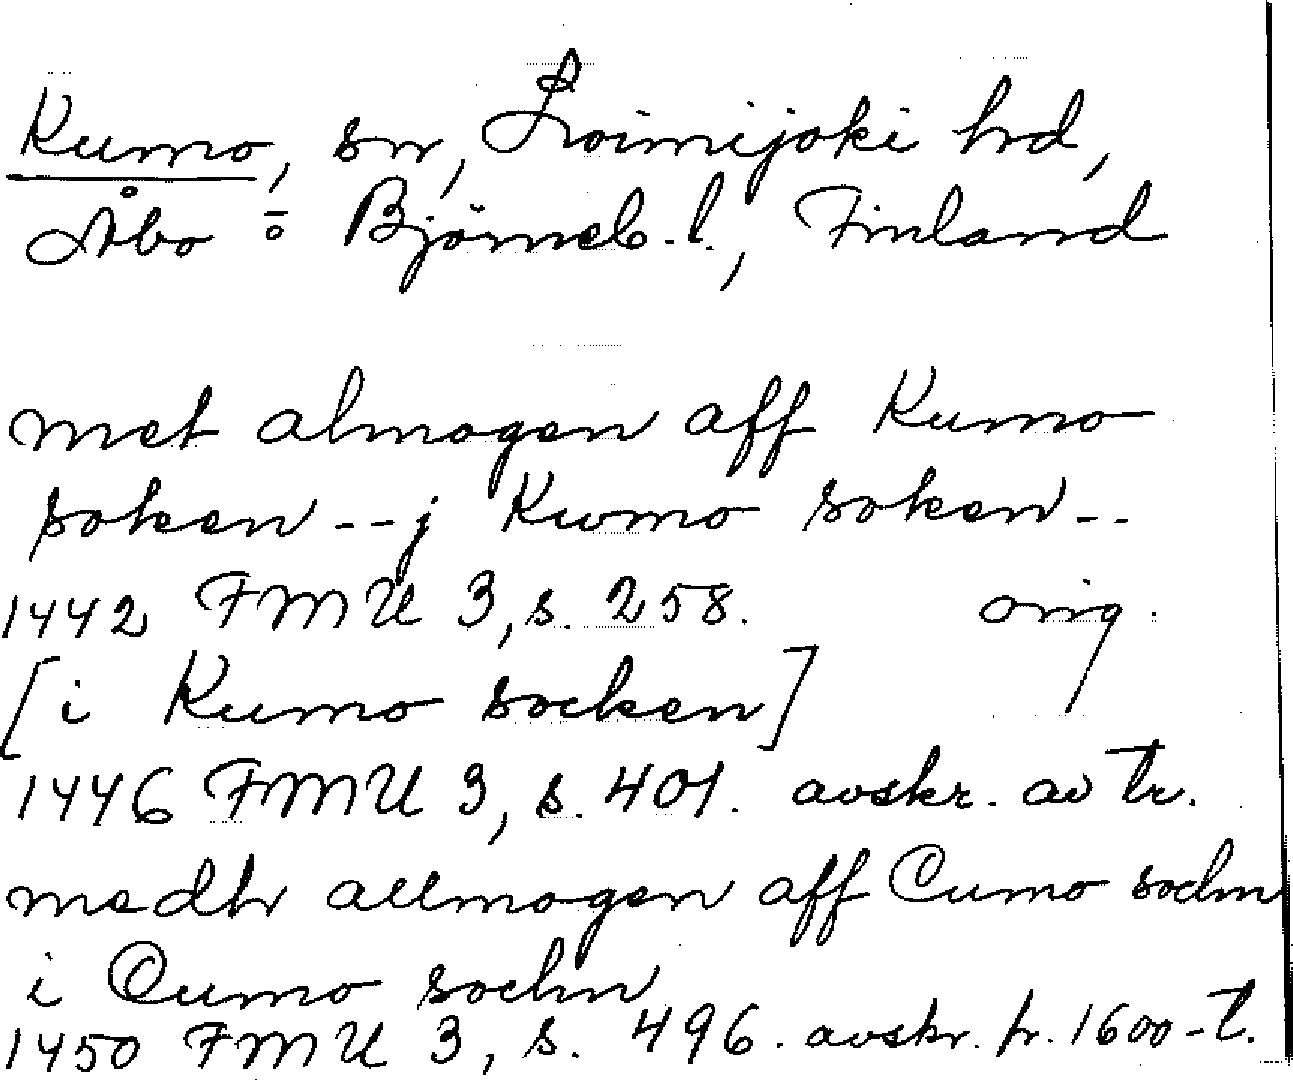 Kumo, sn, Loimijoki hrd,
Åbo o Björneb. l., Finland
met almogen aff Kumo
soken -- j Kwmo soken --
1442 FMU 3, s. 258. orig.
[i Kumo socken]
1446 FMU 3, s. 401. avskr. av tr.
medh allmogen aff Cumo sochn
i Cumo sochn
1450 FMU 3, s. 496. avskr. fr. 1600-t.